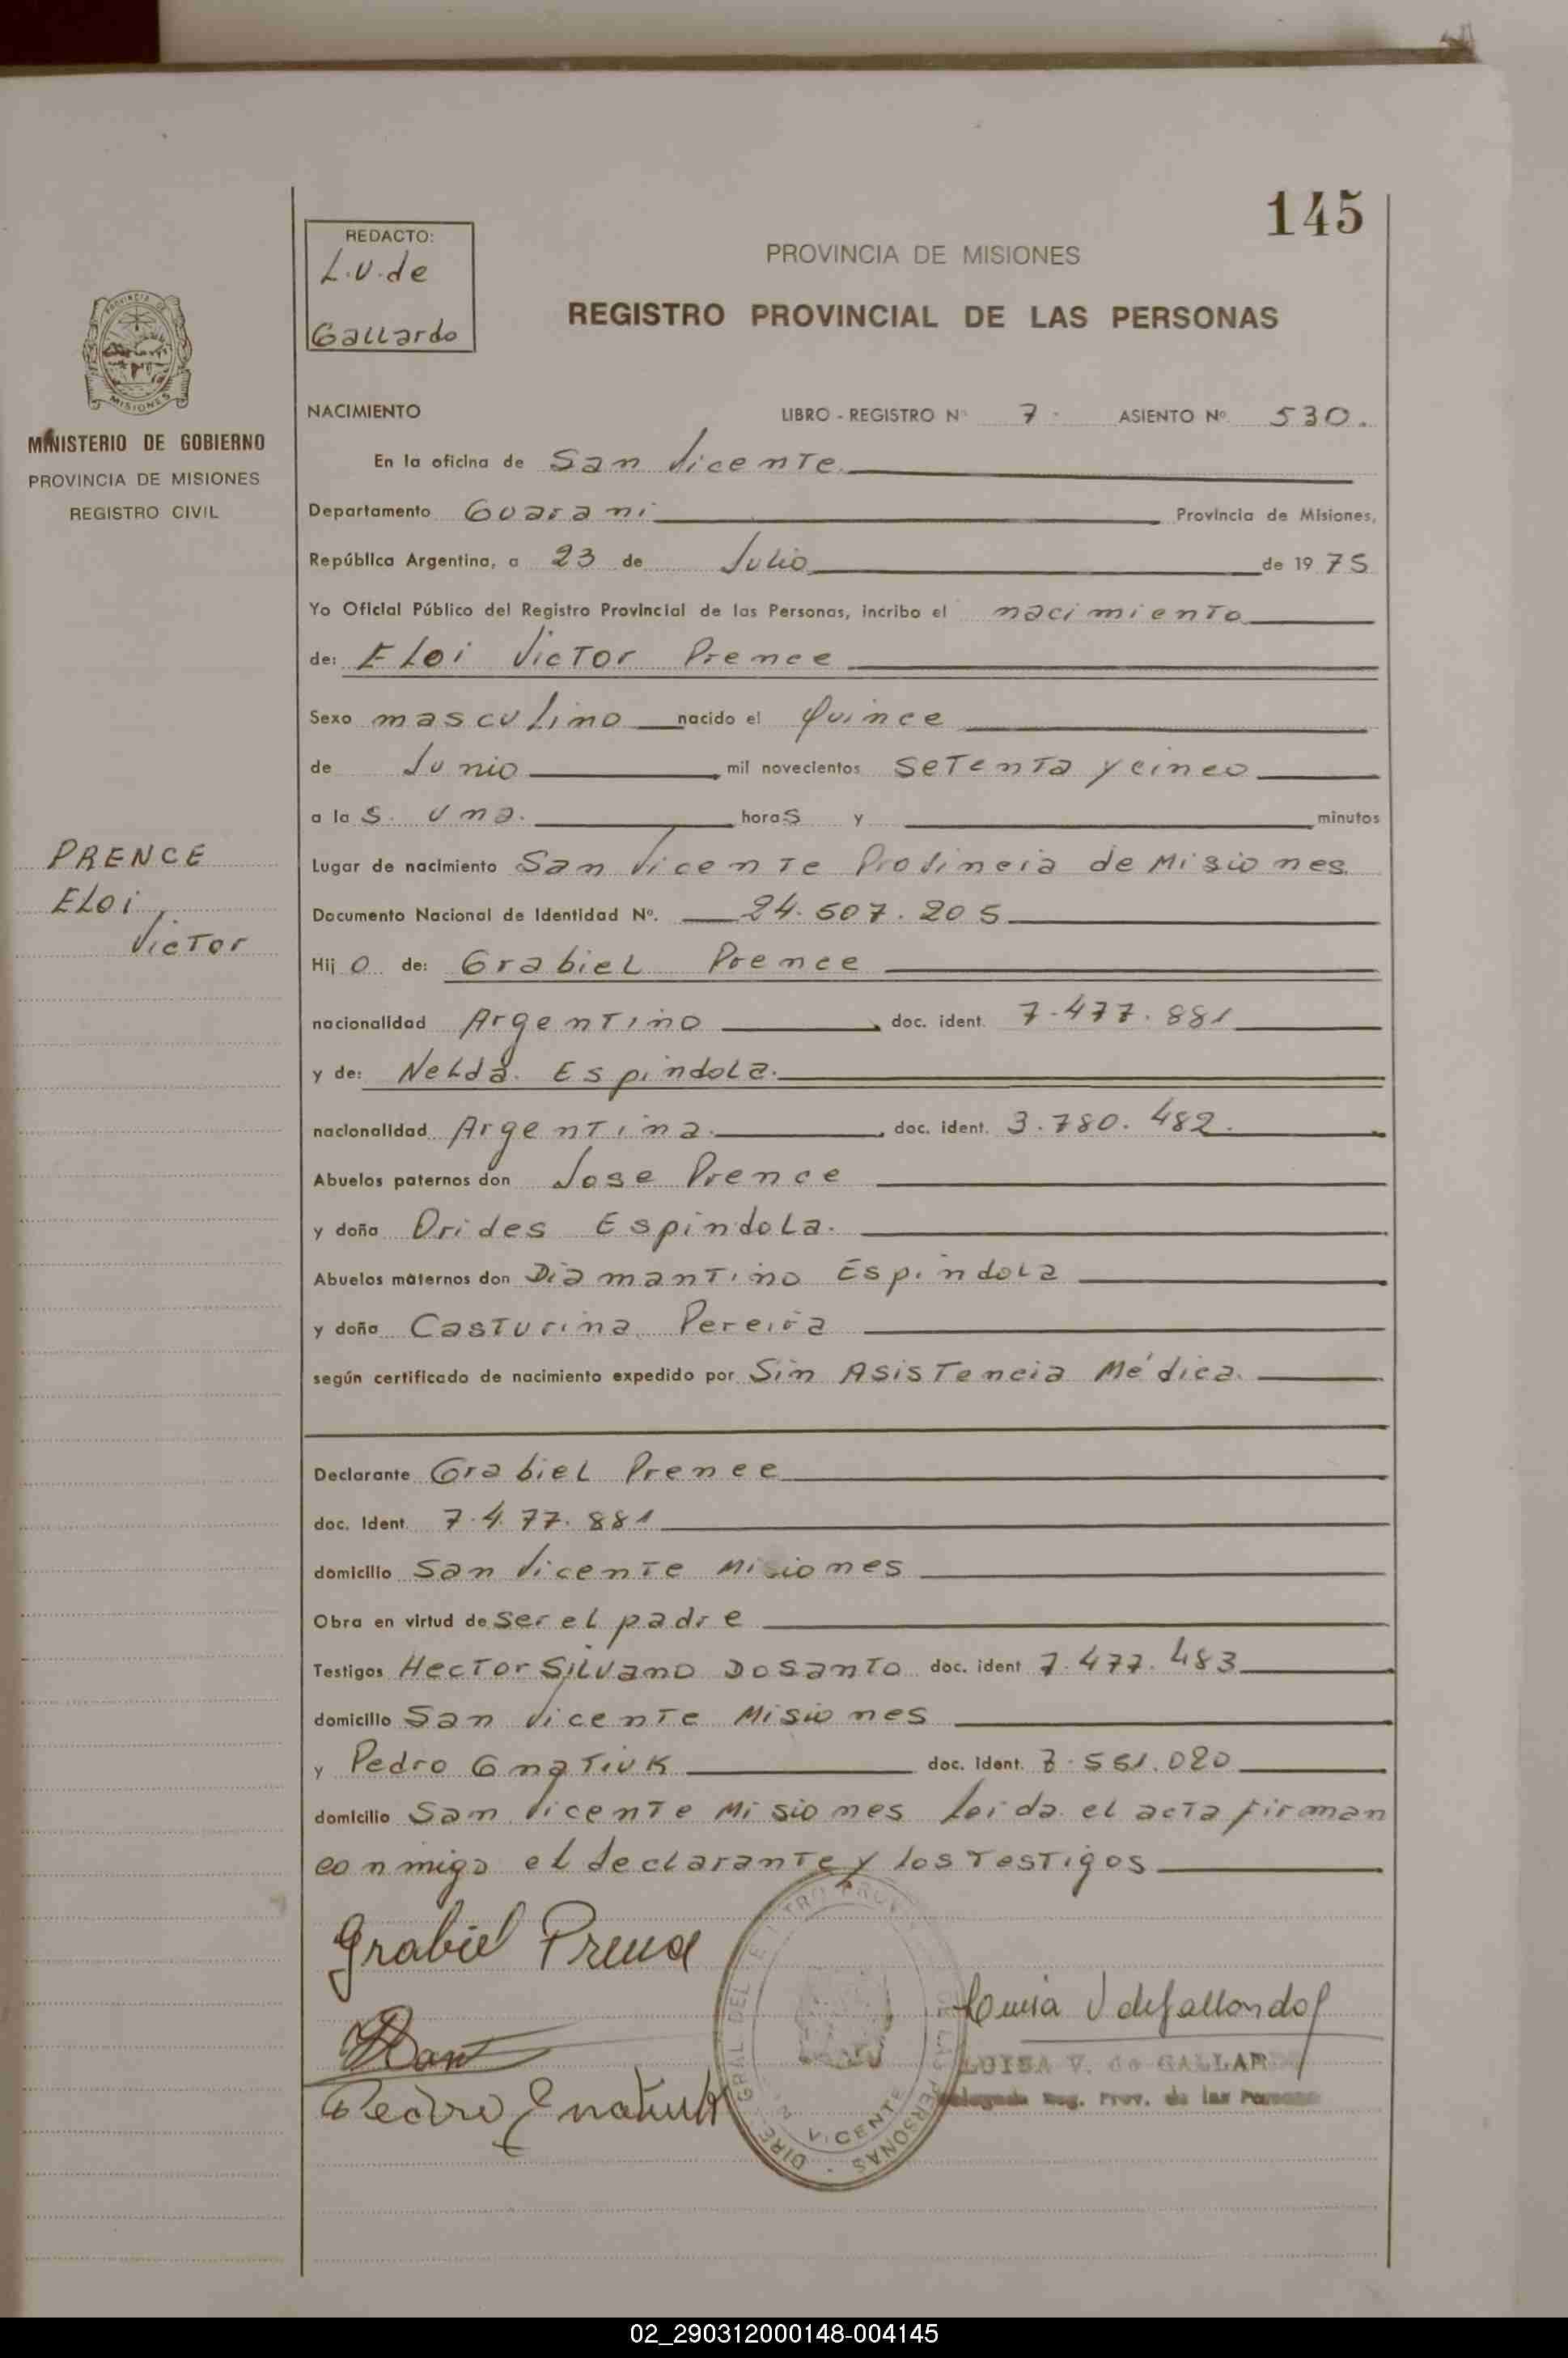 145
REDACTO:
L.V. de
Gallardo
PROVINCIA DE MISIONES
REGISTRO PROVINCIAL DE LAS PERSONAS
PROVINCIA DE
MISIONES
MINISTERIO DE GOBIERNO
PROVINCIA DE MISIONES
REGISTRO CIVIL
NACIMIENTO LIBRO - REGISTRO Nº 7 - ASIENTO Nº 530.
En la oficina de San Vicente
Departamento Guarani Provincia de Misiones,
República Argentina, a 23 de Julio de 1975
Yo Oficial Público del Registro Provincial de las Personas, incribo el nacimiento
de: Eloi Victor Prence
Sexo masculino nacido el Quince
de Junio mil novecientos setenta y cinco
a las una. horas y minutos
PRENCE
Eloi
Victor
Lugar de nacimiento San Vicente Provincia de Misiones
Documento Nacional de Identidad Nº. 24.507.205
Hijo de: Grabiel Prence
nacionalidad Argentino doc. ident. 7.477.881
y de: Nelda. Espindola.
nacionalidad Argentina. doc. ident. 3.780.482.
Abuelos paternos don Jose Prence
y doña Orides Espindola.
Abuelos maternos don Diamantino Espindola
y doña Casturina Pereira
según certificado de nacimiento expedido por Sin Asistencia Médica.
Declarante Grabiel Prence
doc. Ident. 7.477.881
domicilio San Vicente Misiones
Obra en virtud de ser el padre
Testigos Hector Silvano Dosanto doc. ident 7.477.483
domicilio San Vicente Misiones
y Pedro Gnatiuk doc. Ident. 7.561.020
domicilio San Vicente Misiones Leida el acta firman
conmigo el declarante y los testigos
Grabiel Prence
Pedro Gnatiuk
DIRE GRAL DEL REGISTRO PROV DE LAS PERSONAS
VICENTE
Luisa V de Gallardo
LUISA V. de GALLAR
Delegada Reg. Prov. de las Personas
02_290312000148-004145